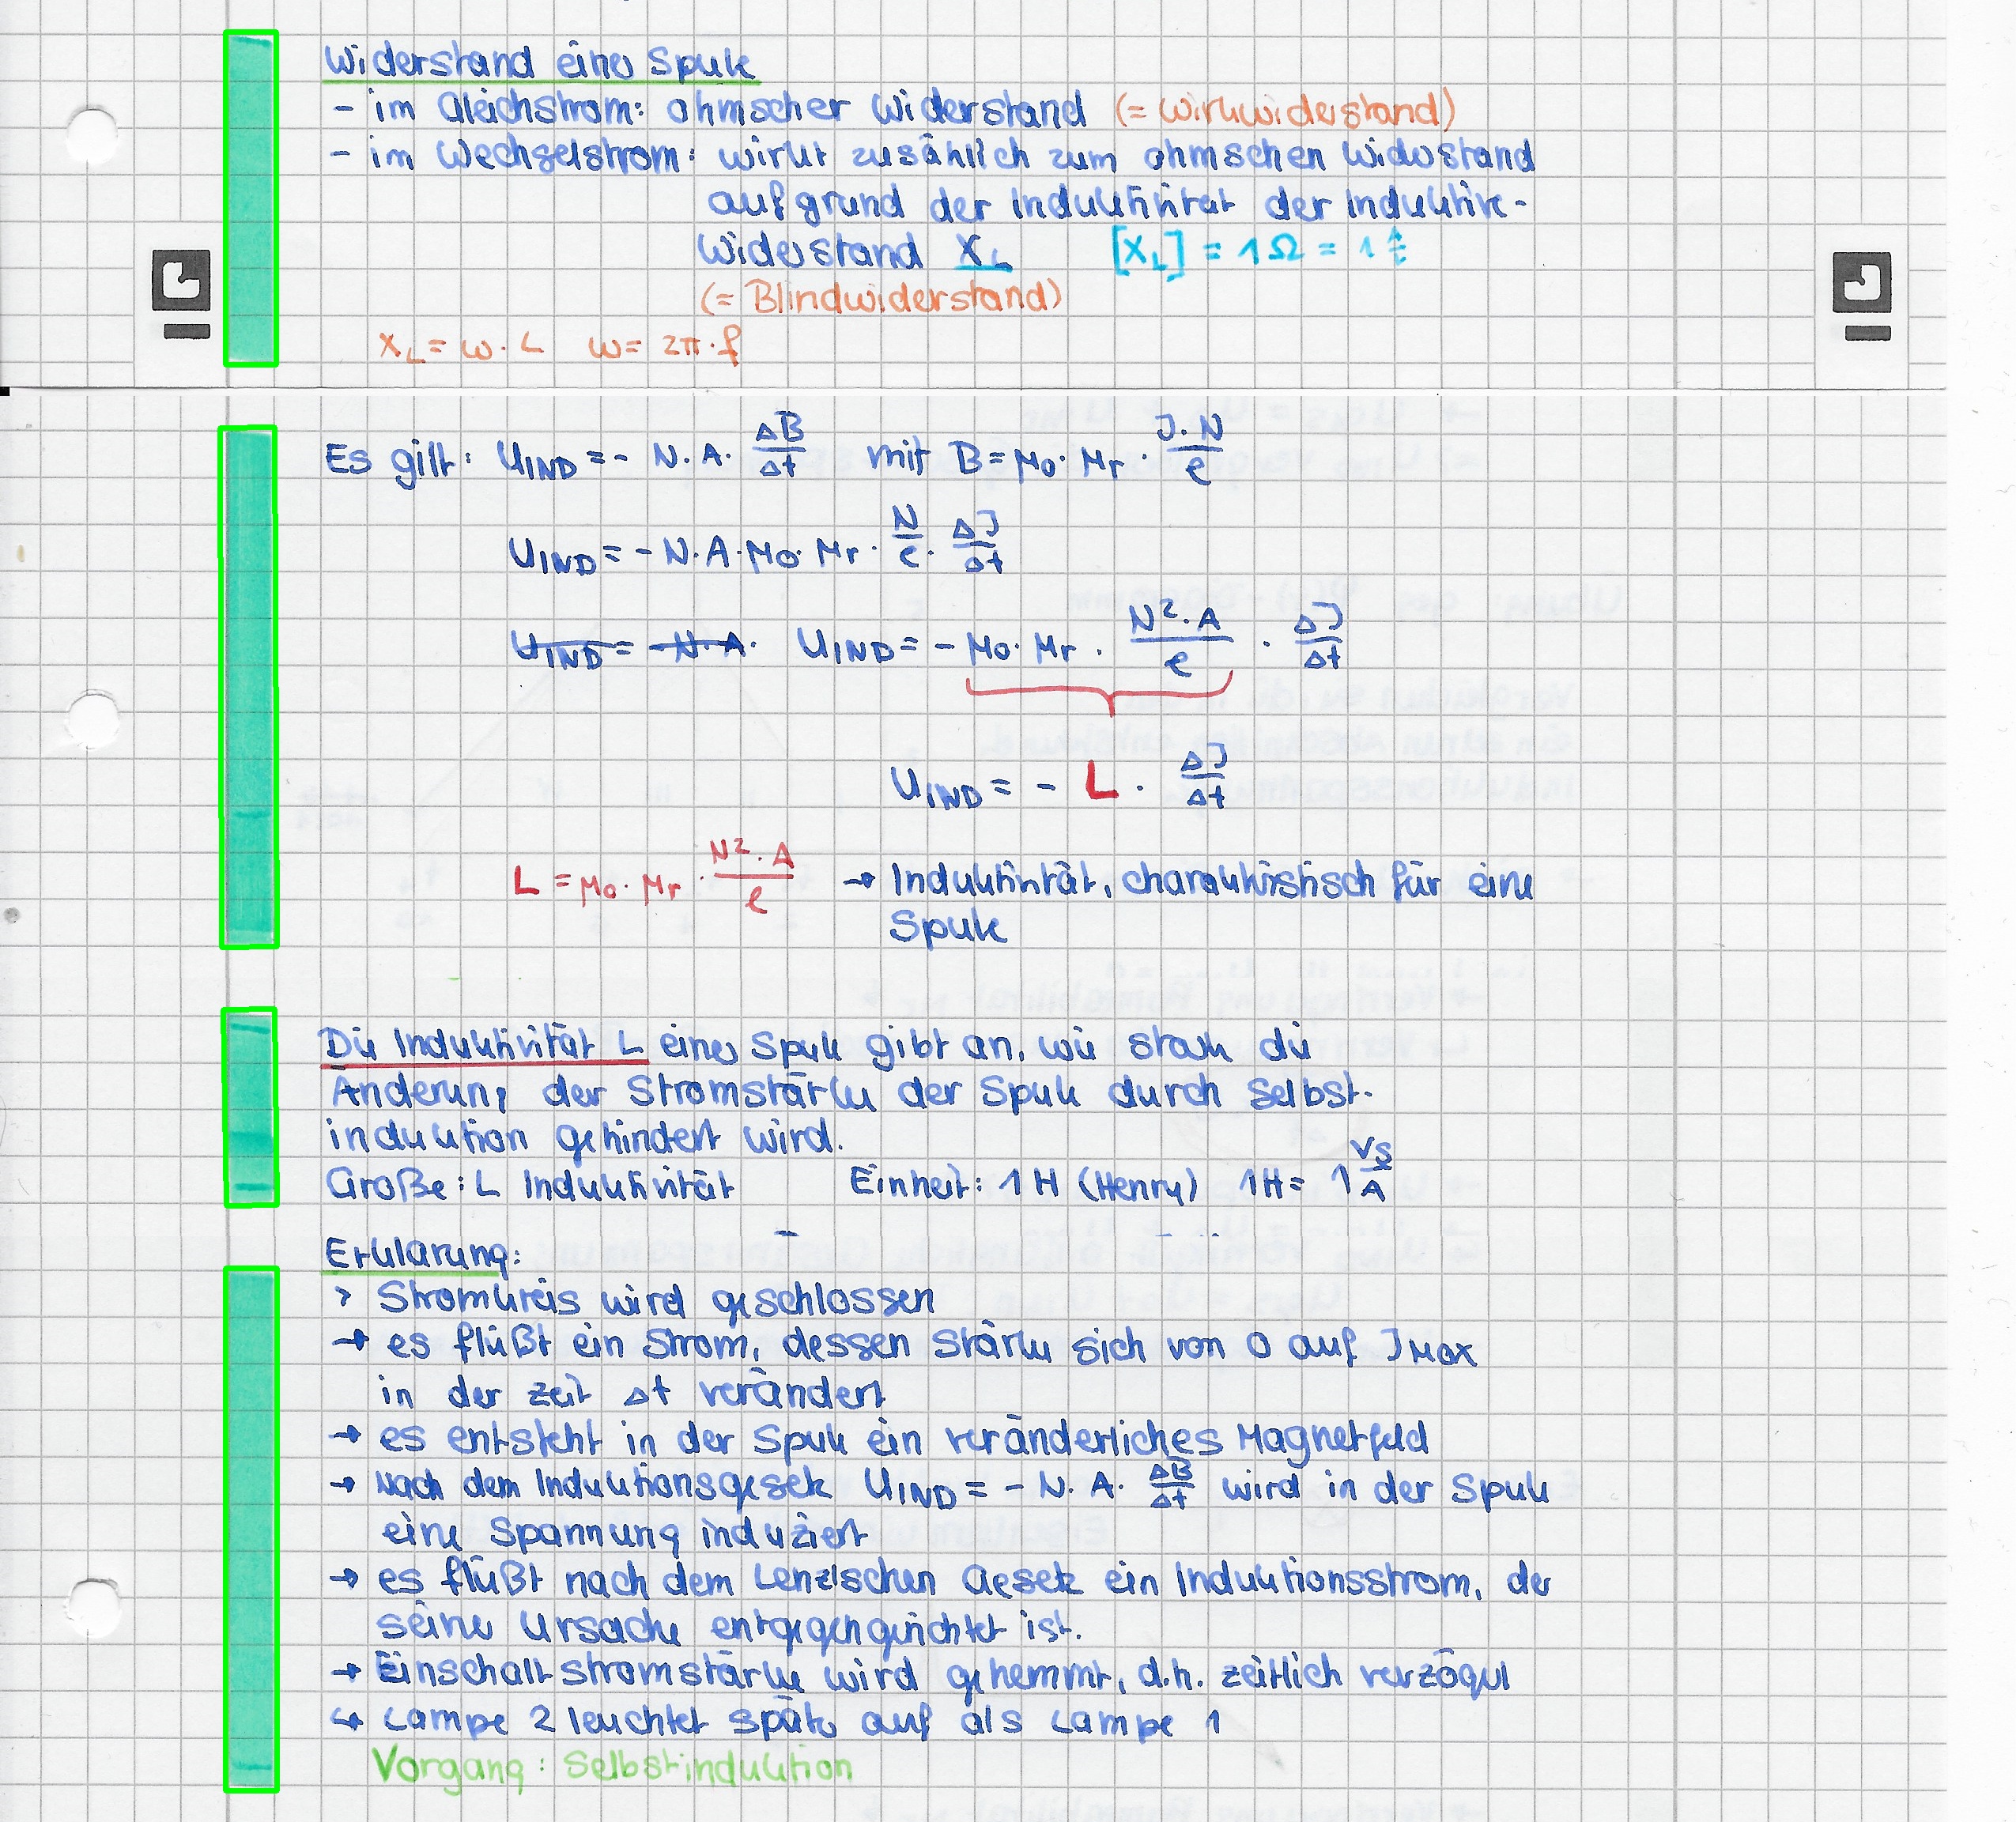 Widerstand einer Spule
- im Gleichstrom: ohmscher Widerstand (= Wirkwiderstand)
- im Wechselstrom: wirkt zusätzlich zum ohmschen Widerstand
aufgrund der Induktivität der Induktive-
Widerstand X_L [X_L] = 1Ω = 1
(= Blindwiderstand)
X_L = ω · L ω = 2π · f
Es gilt: U_IND = - N · A · ΔB/Δt mit B = μ₀ · μ_r · J · N/ℓ
U_IND = - N · A · μ₀ · μ_r · N/ℓ · ΔJ/Δt
U_IND = - N · A · U_IND = - μ₀ · μ_r · N² · A/ℓ · ΔJ/Δt
U_IND = - L · ΔJ/Δt
L = μ₀ · μ_r · N² · A/ℓ → Induktivität, charakteristisch für eine
Spule
Die Induktivität L einer Spule gibt an, wie stark die
Änderung der Stromstärke der Spule durch Selbst-
induktion gehindert wird.
Größe: L Induktivität Einheit: 1 H (Henry) 1H = 1 Vs/A
Erklärung:
> Stromkreis wird geschlossen
→ es fließt ein Strom, dessen Stärke sich von 0 auf J_Max
in der Zeit Δt verändert
→ es entsteht in der Spule ein veränderliches Magnetfeld
→ Nach dem Induktionsgesetz U_IND = - N · A · ΔB/Δt wird in der Spule
eine Spannung induziert
→ es fließt nach dem Lenzschen Gesetz ein Induktionsstrom, der
seiner Ursache entgegengerichtet ist.
→ Einschaltstromstärke wird gehemmt, d.h. zeitlich verzögert
↳ Lampe 2 leuchtet später auf als Lampe 1
Vorgang: Selbstinduktion